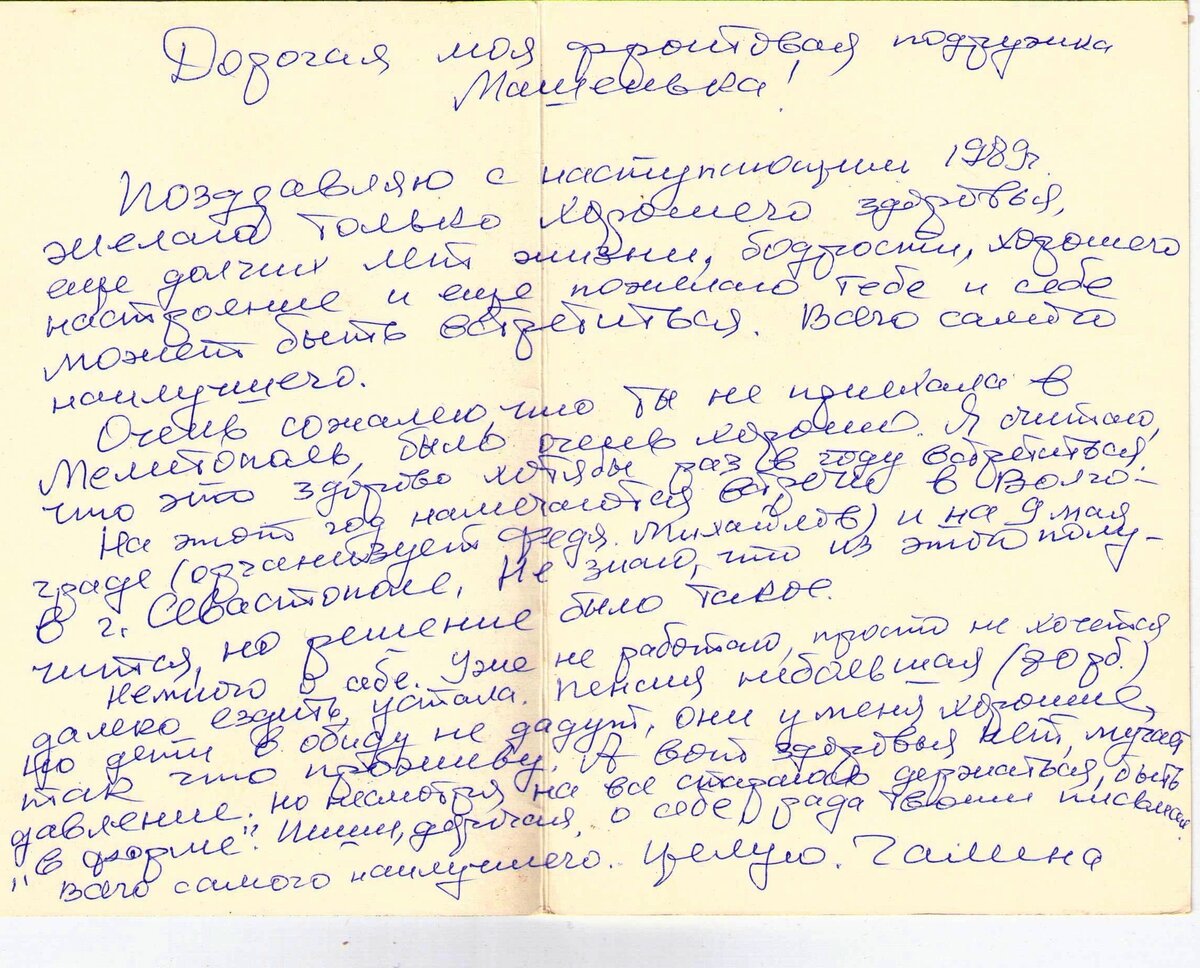 Дорогая моя фронтовая подружка
Машенька!
Поздравляю с наступающим 1989г.
желаю только хорошего здоровья,
еще долгих лет жизни, бодрости, хорошего
настроение и еще пожелаю тебе и себе
может быть встретиться. Всего самого
наилучшего.
Очень сожалею, что ты не приехала в
Мелитополь, было очень хорошо. Я считаю,
что это здорово хотябы раз в году встретиться.
На этот год намечаются встречи в Волго-
граде (организует Федя Михайлов) и на 9 мая
в г. Севастополе. Не знаю, что из этого полу-
чится, но решение было такое.
Немного о себе. Уже не работаю, просто не хочется
далеко ездить, устала. Пенсия небольшая (70 рб.)
но дети в обиду не дадут, они у меня хорошие,
так что проживу. А вот здоровья нет, мучает
давление. но несмотря на все стараюсь держаться, быть
"в форме". Пиши, дорогая, о себе, рада твоим письмам.
Всего самого наилучшего. Целую. Галина